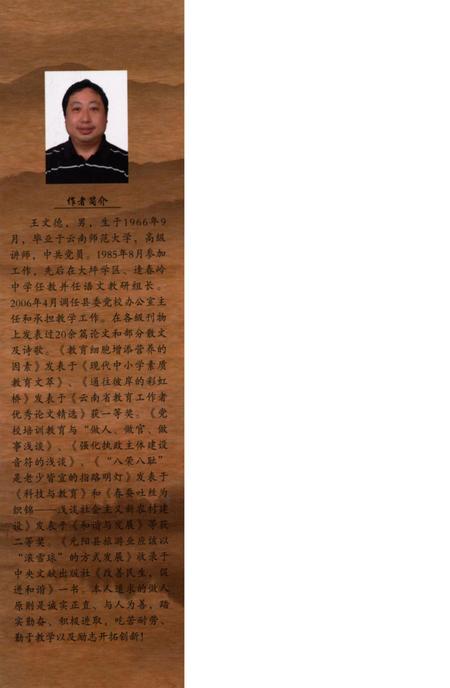 作者简介
王文德，男，生于1966年9
月，毕业于云南师范大学，高级
讲师，中共党员。1985年8月参加
工作，先后在大坪学区、逢春岭
中学任教并任语文教研组长。
2006年4月调任县委党校办公室主
任和承担教学工作。在各级刊物
上发表过20余篇论文和部分散文
及诗歌。《教育细胞增添营养的
因素》发表于《现代中小学素质
教育文萃》、《通往彼岸的彩虹
桥》发表于《云南省教育工作者
优秀论文精选》获一等奖。《党
校培训教育与“做人、做官、做
事浅谈》、《强化执政主体建设
音符的浅谈》、《“八荣八耻”
是老少皆宜的指路明灯》发表于
《科技与教育》和《春蚕吐丝为
织锦——浅谈社会主义新农村建
设》发表于《和谐与发展》等获
二等奖。《元阳县旅游业应该以
“滚雪球”的方式发展》收录于
中央文献出版社《改善民生，促
进和谐》一书。本人追求的做人
原则是诚实正直、与人为善，踏
实勤奋、积极进取，吃苦耐劳、
勤于教学以及励志开拓创新！